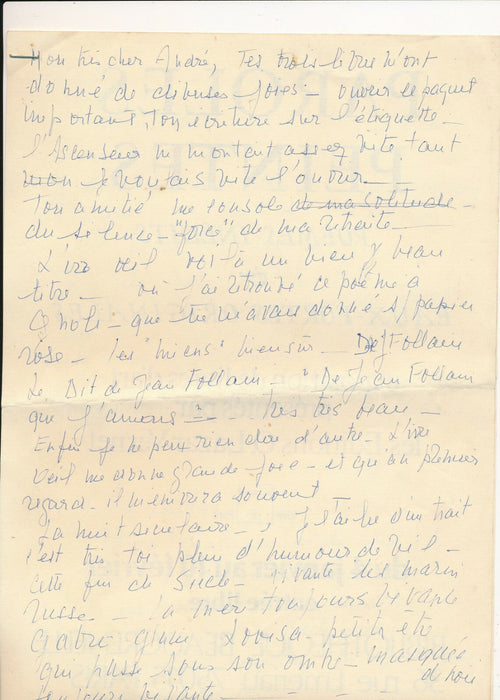 Mon très cher André, Tes trois livres m'ont
donné de joies - ouvrir le paquet
important, ton écriture sur l'étiquette -
l'Ascenseur ne montait assez vite tant
je voulais vite l'ouvrir -
Ton amitié me console de ma solitude
du silence - "forcé" de ma retraite -
L'ivre œil voilà un bien beau
titre - où j'ai retrouvé ce poème à
que tu m'avais donné s/ papier
rose - les "miens" bien sûr - De J Follain
Le Dit de Jean Follain - "De Jean Follain
que j'aimons" - très très beau -
Enfin je ne peux rien dire d'autre - L'ivre
œil me donne grande joie - et qu'au premier
regard - il m'enivra souvent -
La nuit - je l'ai lue d'un trait
c'est très toi plein d'humour de
Cette fin de Siècle - vivante les marin
russe - la mer toujours
Louisa - petit été
qui passe sous son ombre - masquée
de noir
toujours